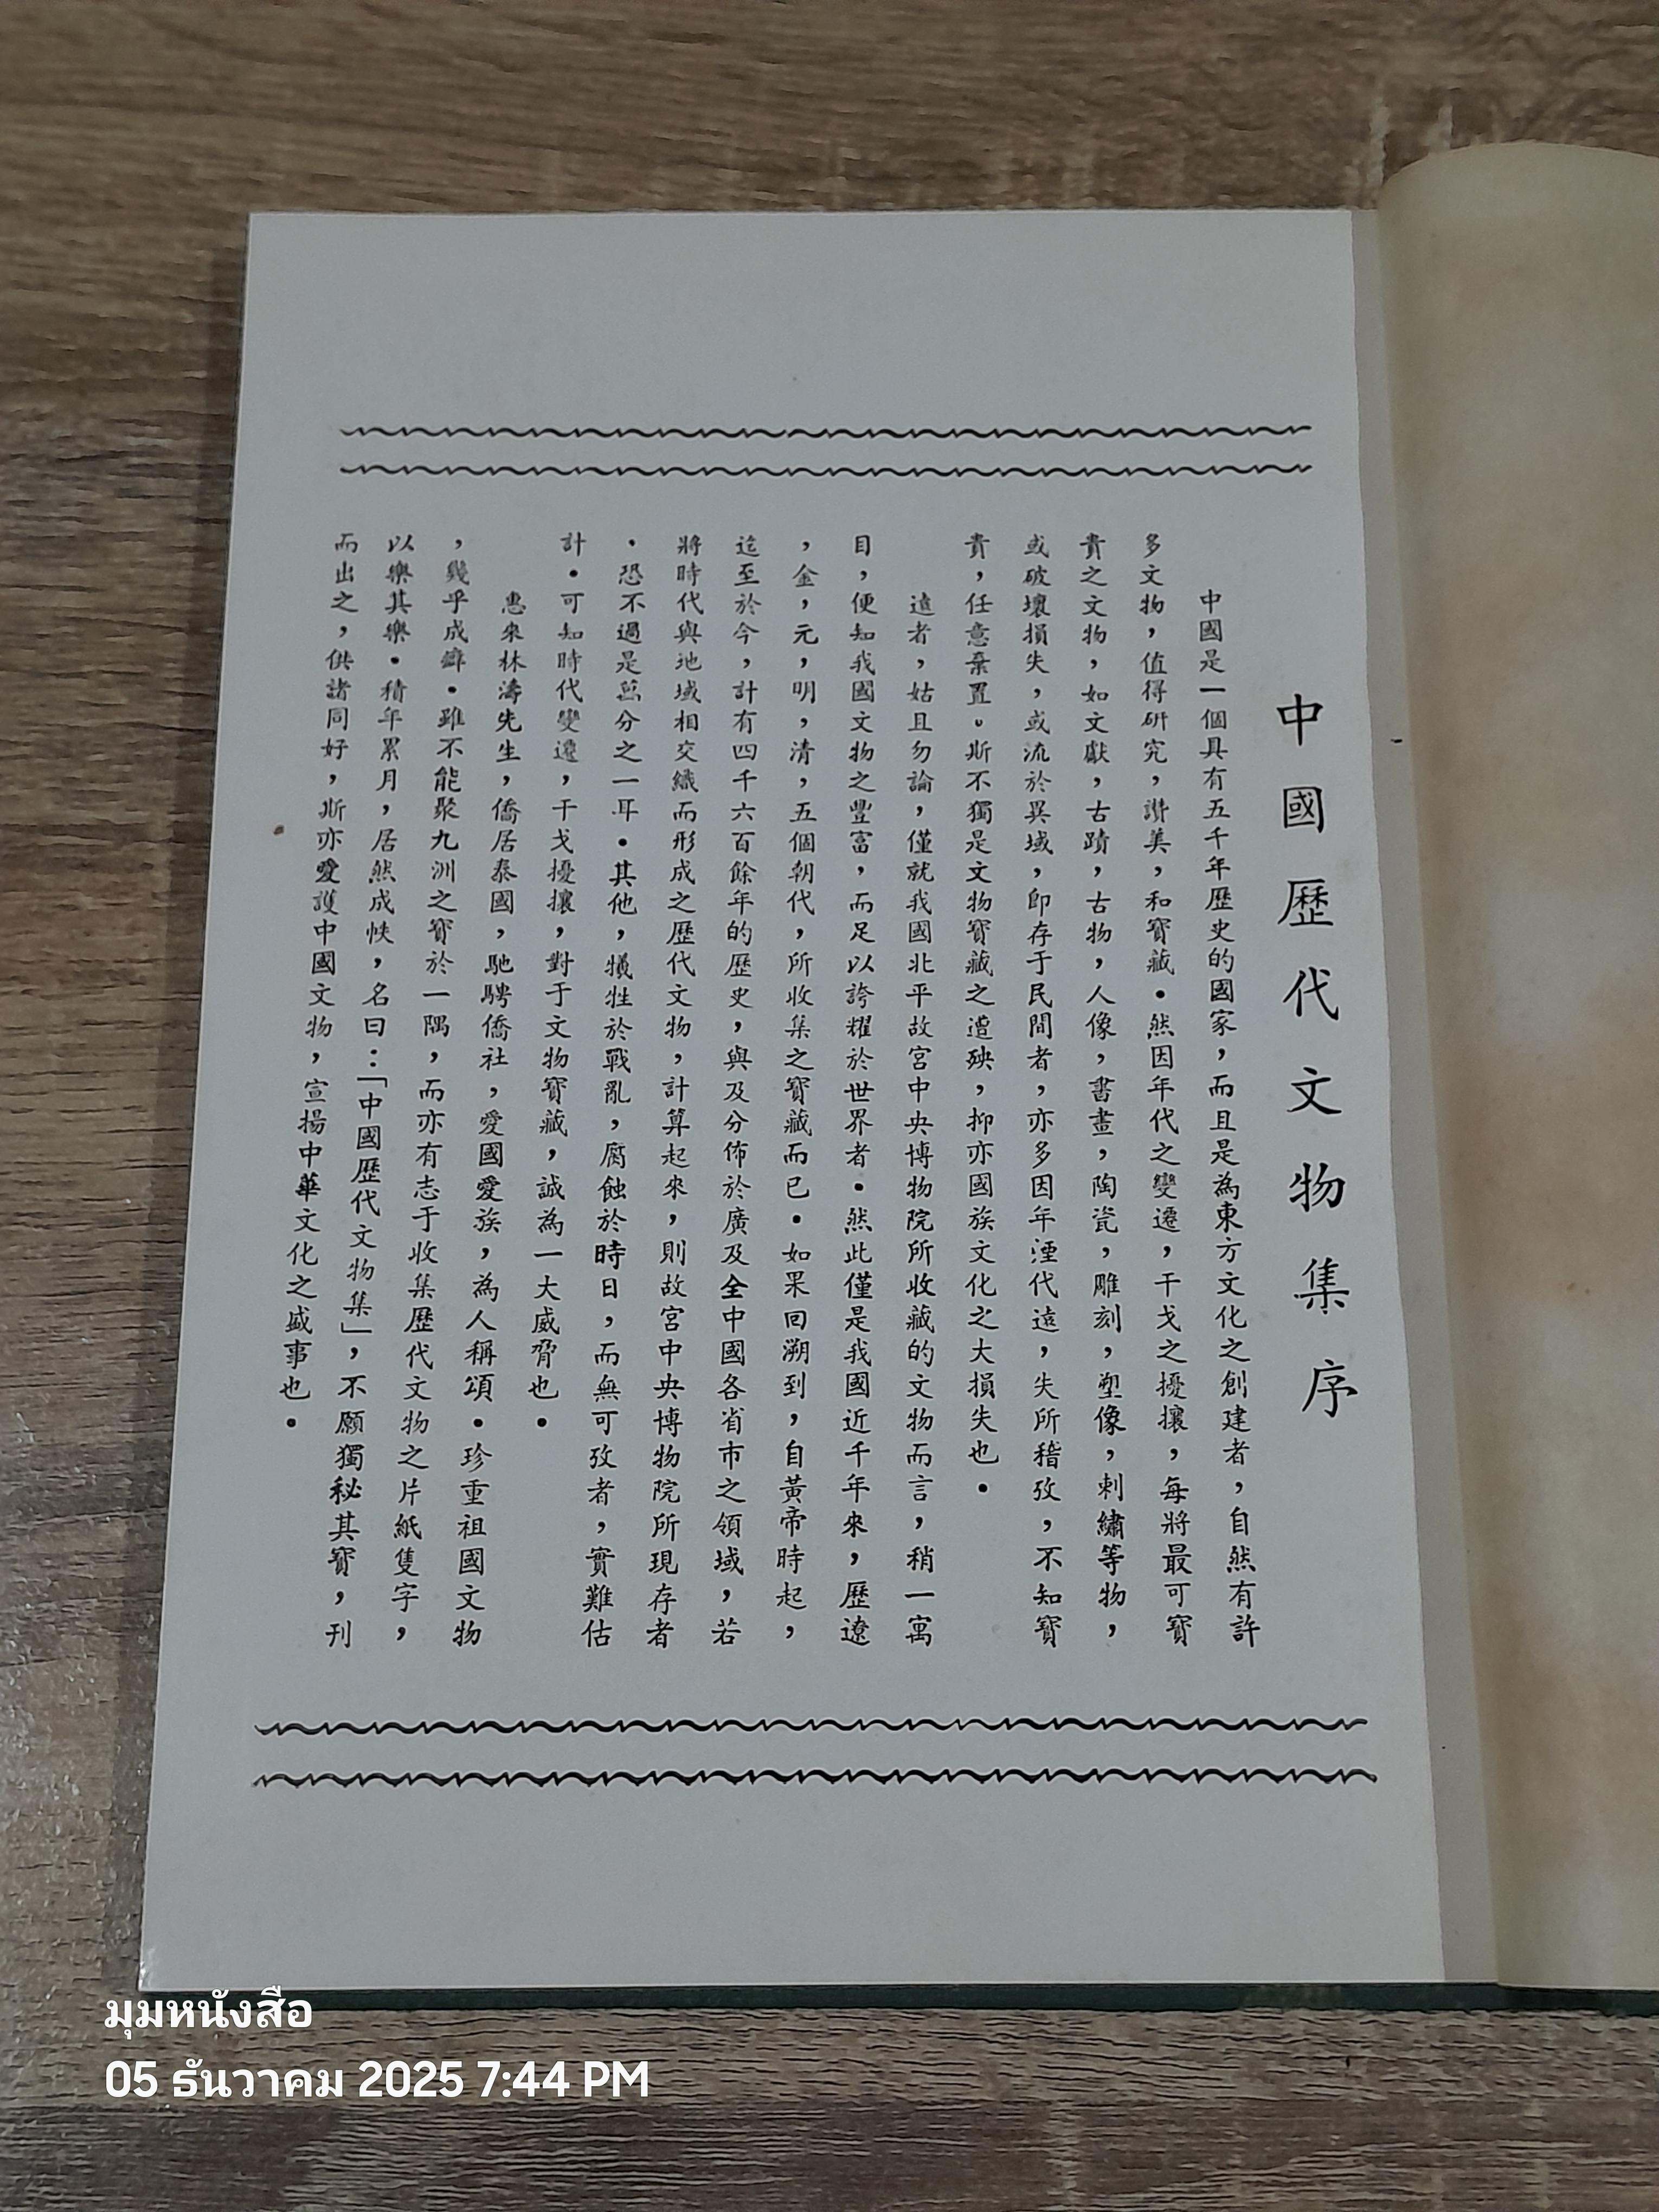 中國歷代文物集序
中國是一個具有五千年歷史的國家，而且是為東方文化之創建者，自然有許
多文物，值得研究，讚美，和寶藏．然因年代之變遷，干戈之擾攘，每將最可寶
貴之文物，如文獻，古蹟，古物，人像，書畫，陶瓷，雕刻，塑像，刺繡等物，
或破壞損失，或流於異域，即存于民間者，亦多因年湮代遠，失所稽攷，不知寶
貴，任意棄置。斯不獨是文物寶藏之遭殃，抑亦國族文化之大損失也．
遠者，姑且勿論，僅就我國北平故宮中央博物院所收藏的文物而言，稍一寓
目，便知我國文物之豐富，而足以誇耀於世界者．然此僅是我國近千年來，歷遼
，金，元，明，清，五個朝代，所收集之寶藏而已．如果回溯到，自黃帝時起，
迄至於今，計有四千六百餘年的歷史，與及分佈於廣及全中國各省市之領域，若
將時代與地域相交織而形成之歷代文物，計算起來，則故宮中央博物院所現存者
．恐不過是萬分之一耳．其他，犧牲於戰亂，腐蝕於時日，而無可攷者，實難估
計．可知時代變遷，干戈擾攘，對于文物寶藏，誠為一大威脅也．
惠來林濤先生，僑居泰國，馳騁僑社，愛國愛族，為人稱頌．珍重祖國文物
，幾乎成癖．雖不能聚九洲之寶於一隅，而亦有志于收集歷代文物之片紙隻字，
以樂其樂．積年累月，居然成帙，名曰：「中國歷代文物集」，不願獨秘其寶，刊
而出之，供諸同好，斯亦愛護中國文物，宣揚中華文化之盛事也．
มุมหนังสือ
05 ธันวาคม 2025 7:44 PM